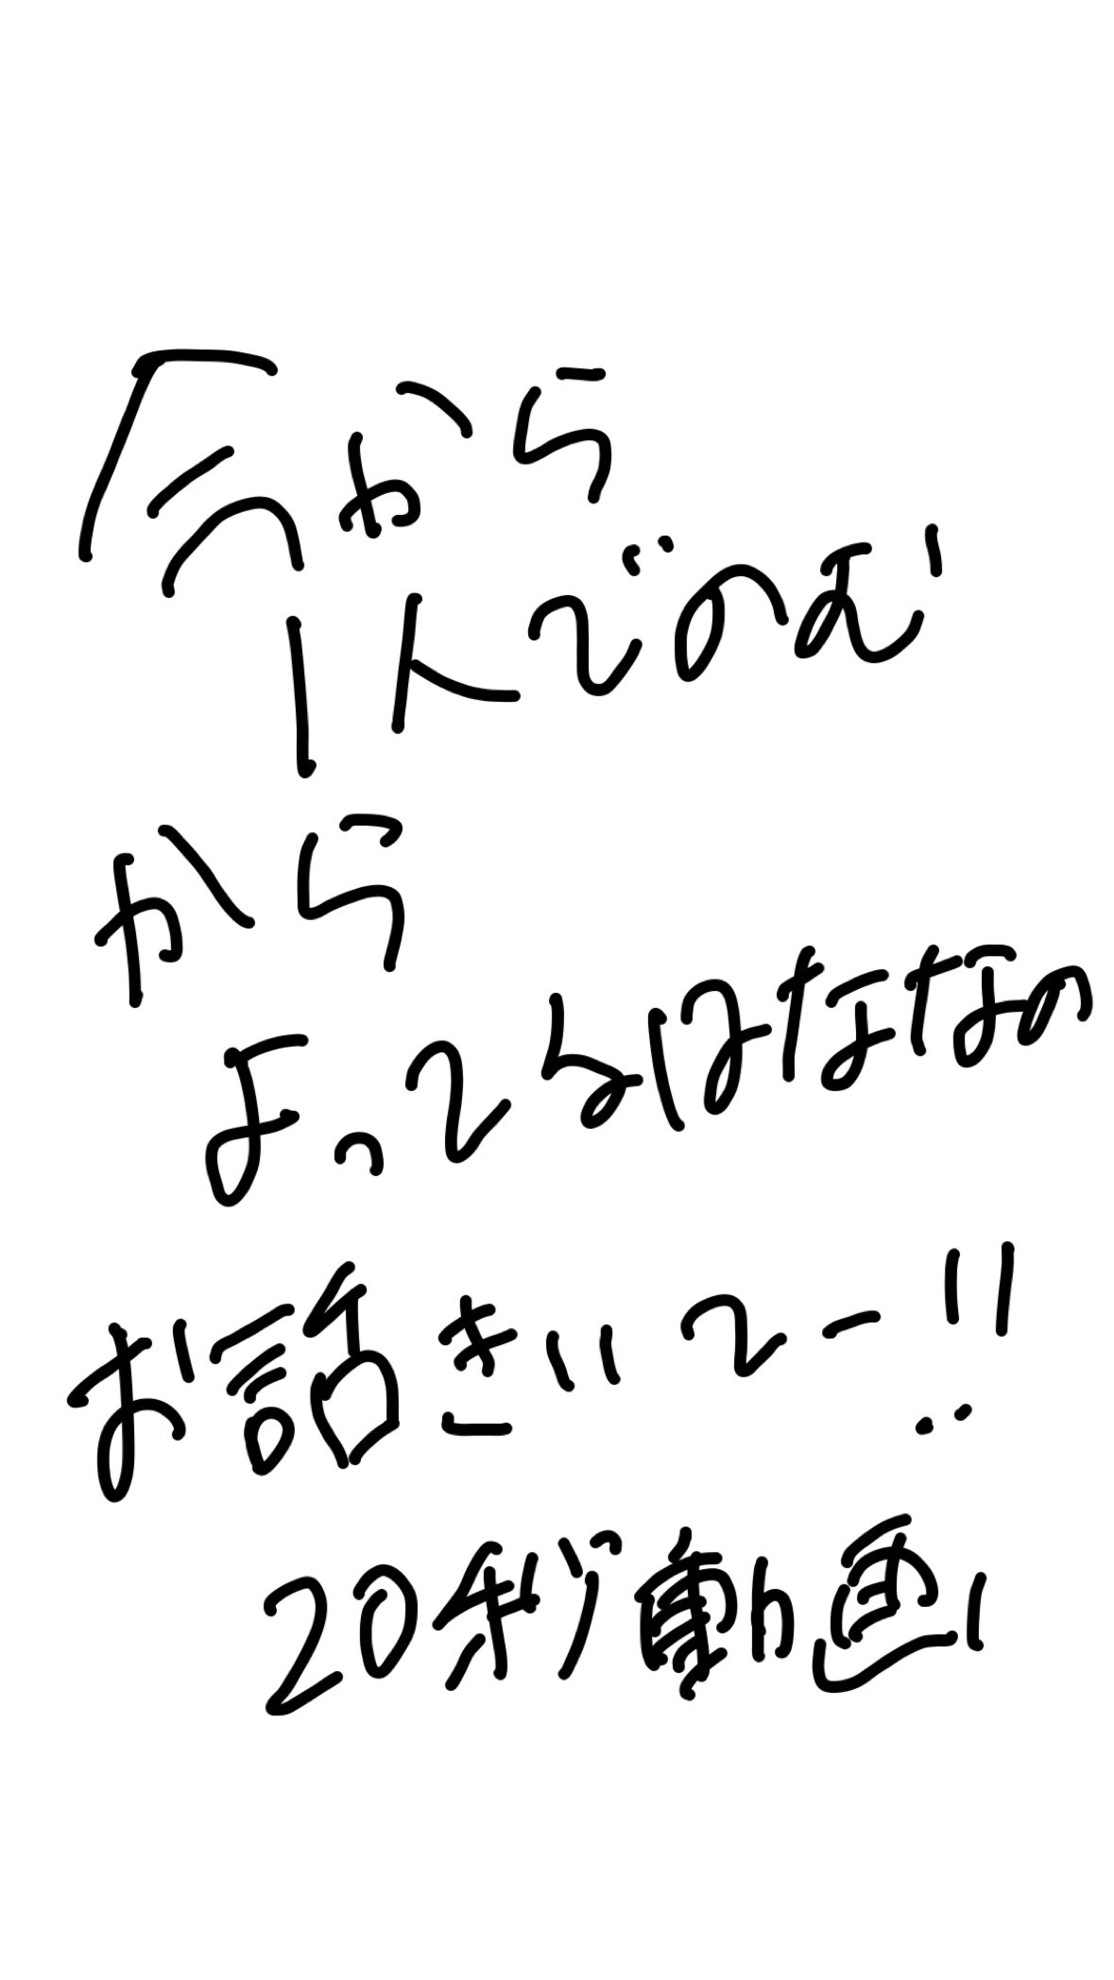 今から
1人でのむ
から
よってるはななの
お話きいてー!!
20秒動画